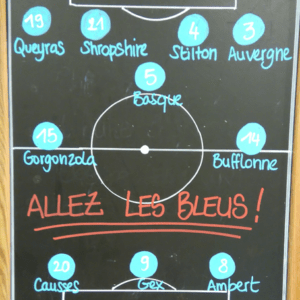 19 21 4 3
Queyras Shropshire Stilton Auvergne
5
Basque
15 14
Gorgonzola Bufflonne
ALLEZ LES BLEUS!
20 9 8
Causses Gex Ampert